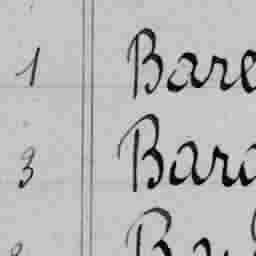 1 Bare
3 Bara